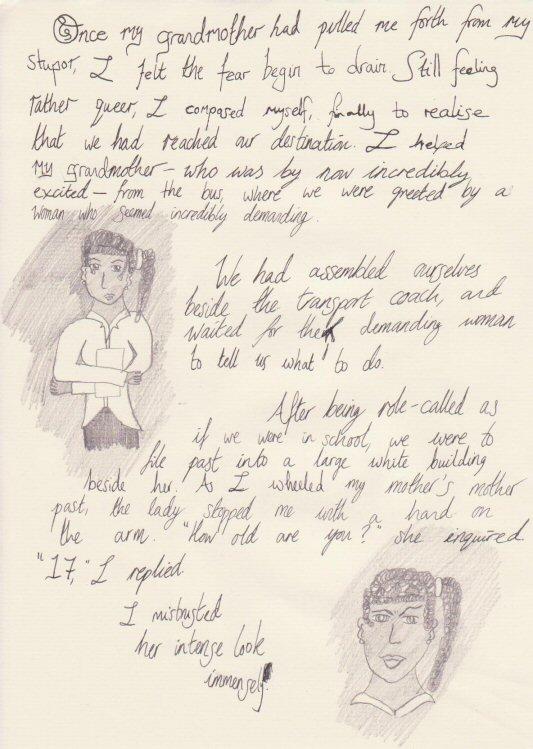 Once my grandmother had pulled me forth from my
stupor, I felt the fear begin to drain. Still feeling
rather queer, I composed myself, finally to realise
that we had reached our destination. I helped
my grandmother – who was by now incredibly
excited – from the bus, where we were greeted by a
woman who seemed incredibly demanding.
We had assembled ourselves
beside the transport coach, and
waited for the demanding woman
to tell us what to do.
After being role-called as
if we were in school, we were to
file past into a large white building
beside her. As I wheeled my mother's mother
past, the lady stopped me with a hand on
the arm. "How old are you?" she enquired
"17," I replied
I mistrusted
her intense look
immensely.